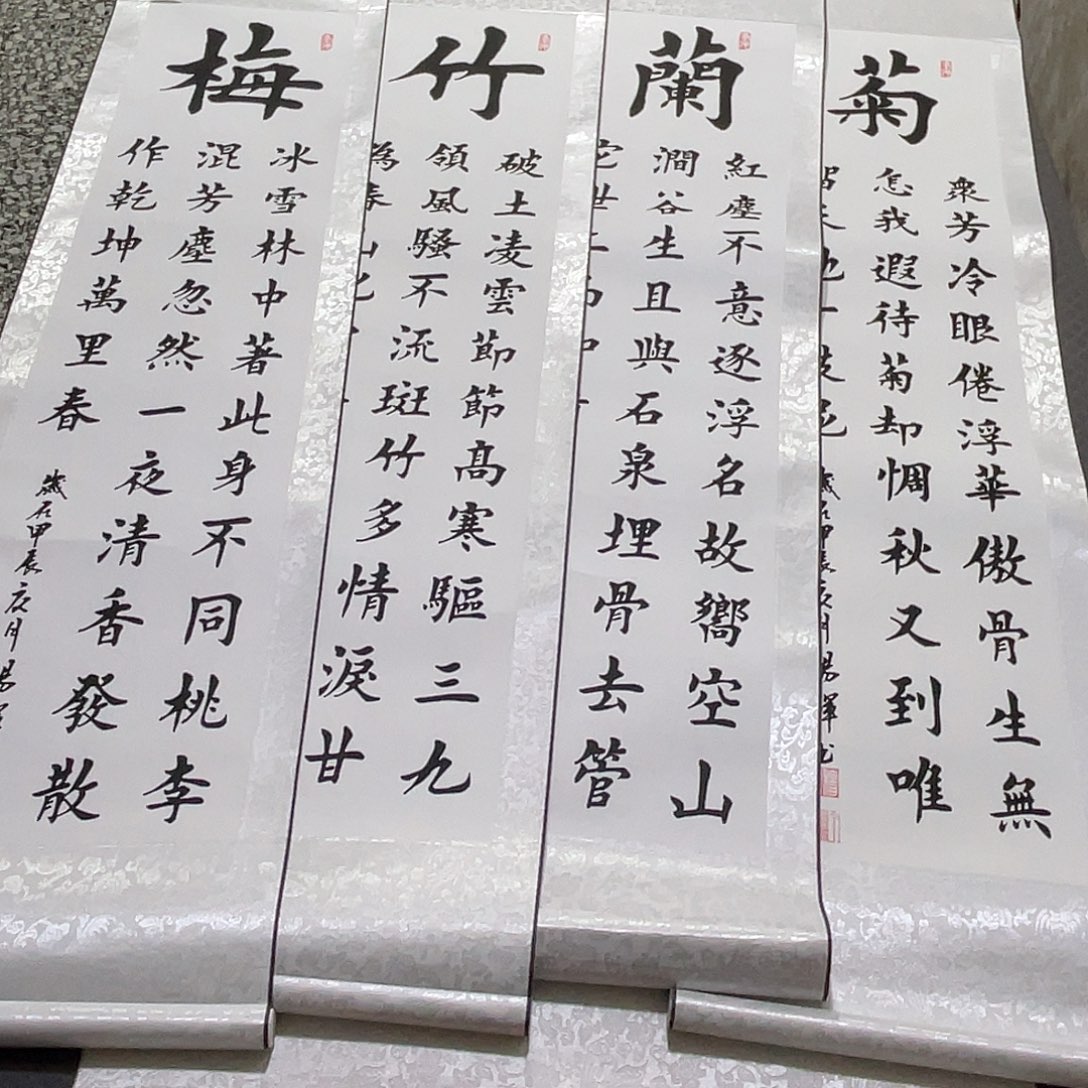 梅
冰雪林中著此身不同桃李
混芳塵忽然一夜清香發散
作乾坤萬里春
歲在甲辰夏月
竹
破土凌雲節節高寒驅三九
領風騷不流斑竹多情淚甘
為春山
蘭
紅塵不意逐浮名故嚮空山
澗谷生且與石泉埋骨去管
它世
菊
衆芳冷眼倦浮華傲骨生無
怎我遐待菊却惆秋又到唯
歲在甲辰夏月